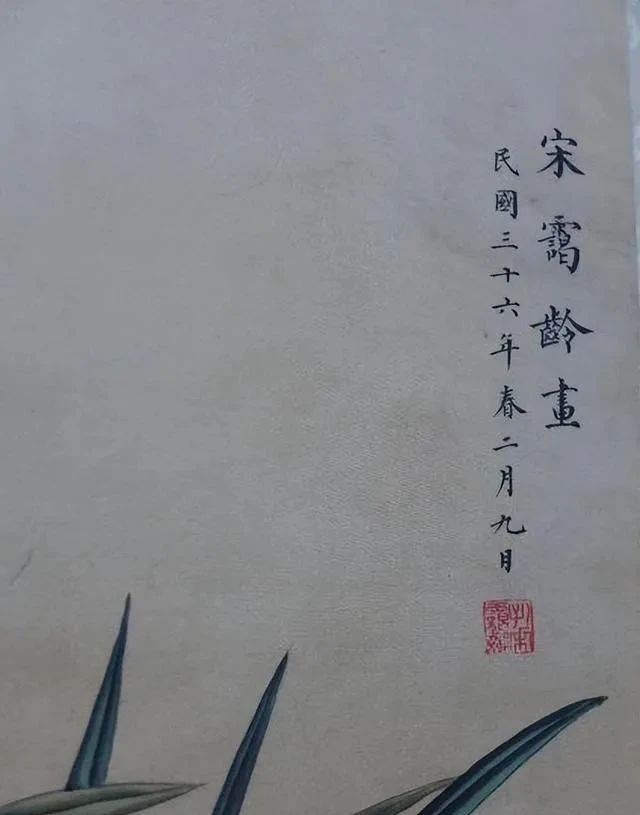 宋靄齡畫
民國三十六年春二月九日